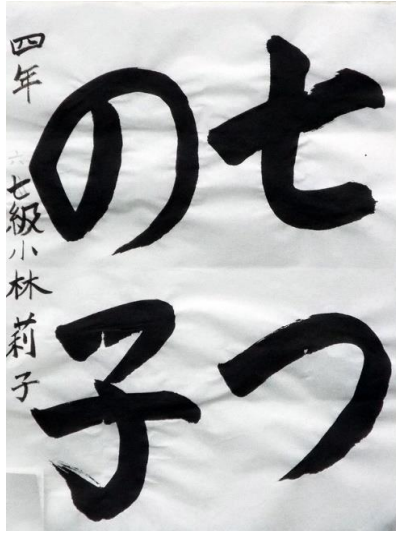 七つ
の子
四年 六七級小林莉子